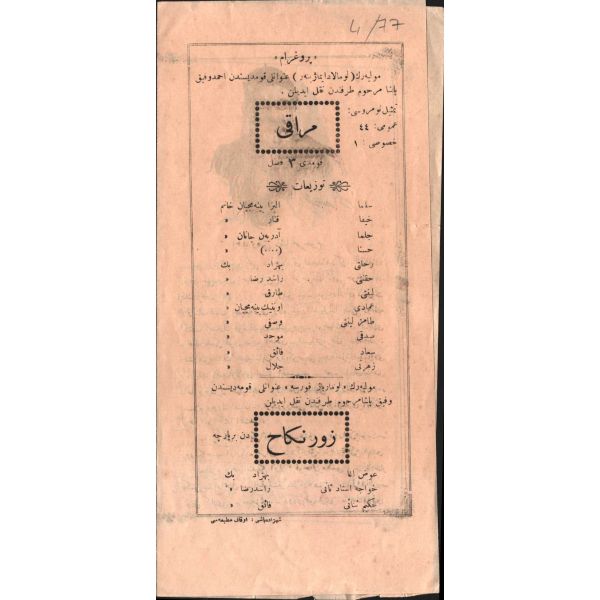 4/77
« پروغرام »
مولیه‌رك ( لومالادایماژینه‌ر ) عنوانلی قومدیسندن احمدوفیق
پاشا مرحوم طرفندن نقل ایدیلن .
تمثیل نومروسی:
عمومی: ٤٤
خصوصی : ١
مراقی
قومدی ٣ فصل
توزیعات
سلما الیزا بینه‌مجیان خانم
خیفا »
جلما آدریه‌ن خانمان »
حسنا (....) »
رخائی بهزاد بك
حقنتی راشد رضا »
لینتی طارق »
عیادی اوبنیك بینه‌مجیان »
طاهر لینتی وصفی »
صدقی موحد »
سعاد فائق »
زهرتی جلال »
مولیه‌رك « لوماریاژ فورسه » عنوانلی قومه‌دیسندن
وفیق پاشا مرحوم طرفندن نقل ایدیلن
زور نكاح
دن بر پارچه
عوض اغا بهزاد بك
خواجه استاد ثانی راشد رضا »
حكیم سنائی فائق »
شهزاده‌باشی : اوقاف مطبعه‌سی